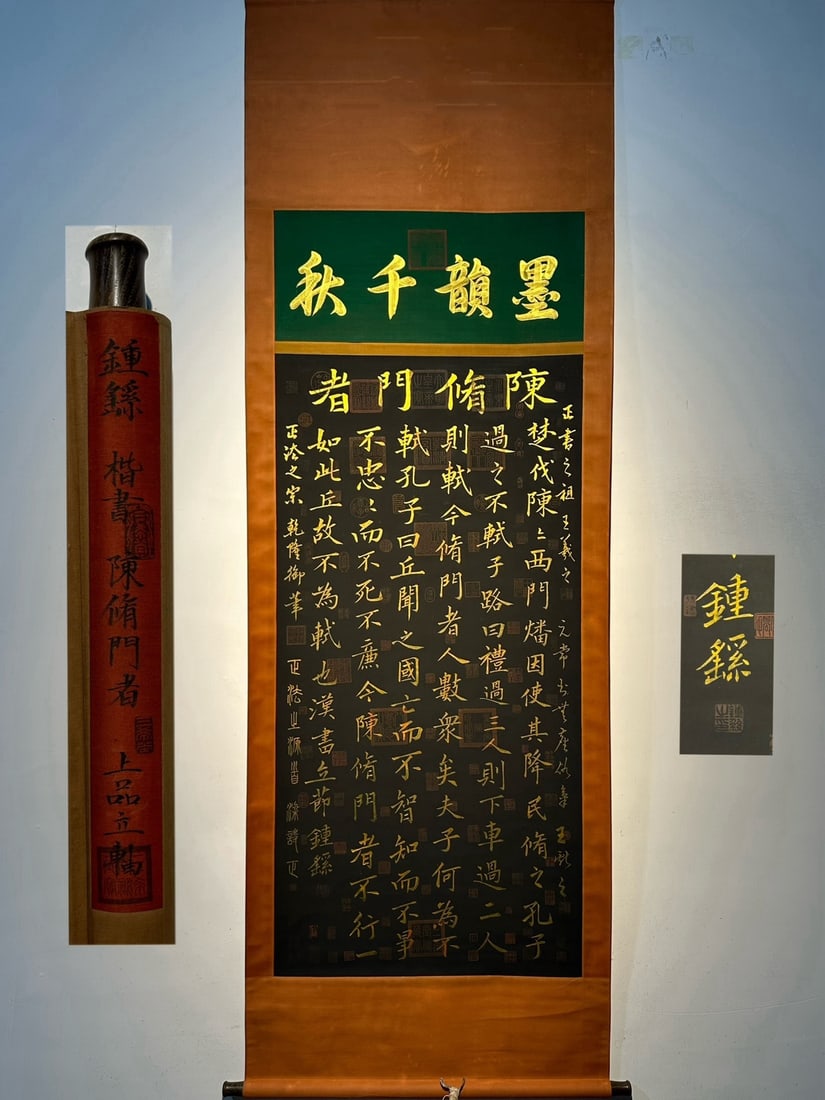 墨韻千秋
陳脩門者
正書之祖 王羲之
楚伐陳〻西門燔因使其降民脩之孔子
過之不軾子路曰禮過三人則下車過二人
則軾今脩門者人數眾矣夫子何為不
軾孔子曰丘聞之國亡而不智知而不爭
不忠〻而不死不廉今陳脩門者不行一
如此丘故不為軾也漢書立節鍾繇
正法之宗 乾隆御筆
鍾繇
鍾繇 楷書 陳脩門者 上品立軸